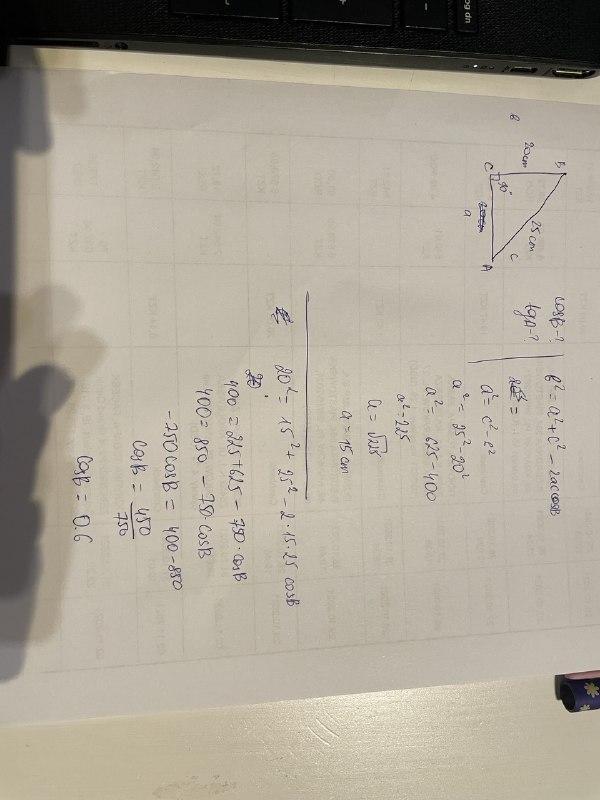 B
20cm
25cm
C
90°
a
A
c
cosB-?
tgA-?
b² = a² + c² - 2ac cosB
a² = c² - b²
a² = 25² - 20²
a² = 625 - 400
a² = 225
a = √225
a = 15 cm
20² = 15² + 25² - 2·15·25 cosB
400 = 225 + 625 - 750·cosB
400 = 850 - 750 cosB
-750 cosB = 400 - 850
cosB = 450/750
cosB = 0.6
pg dn